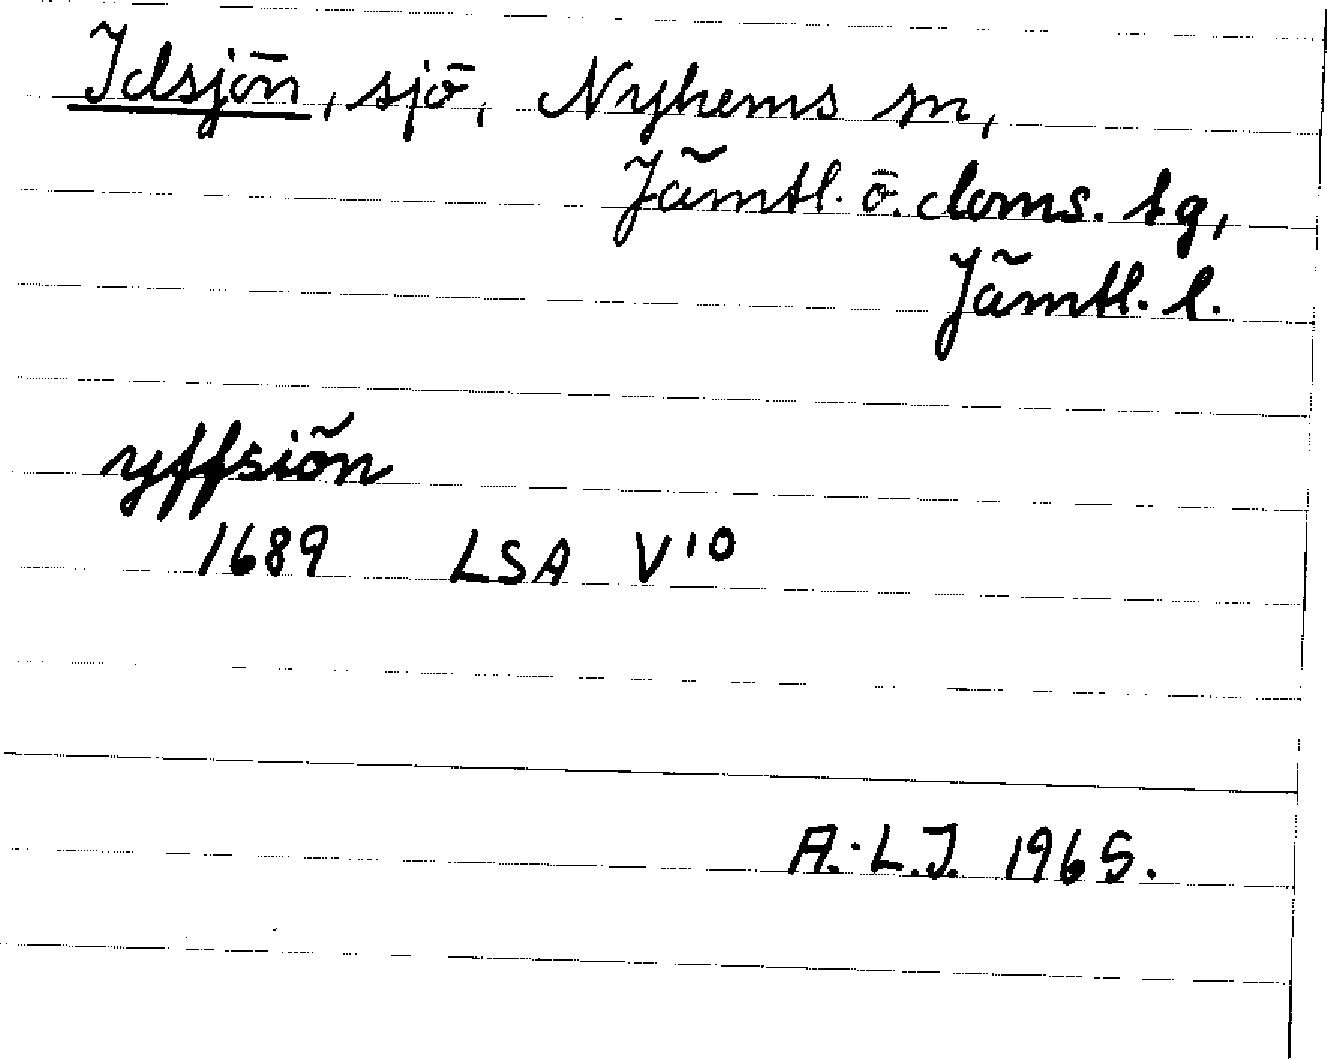 Idsjön, sjö, Nyhems sn,
Jämtl. ö. doms. tg,
Jämtl. l.
yffsiön
1689 LSA V10
A.-L.J. 1965.